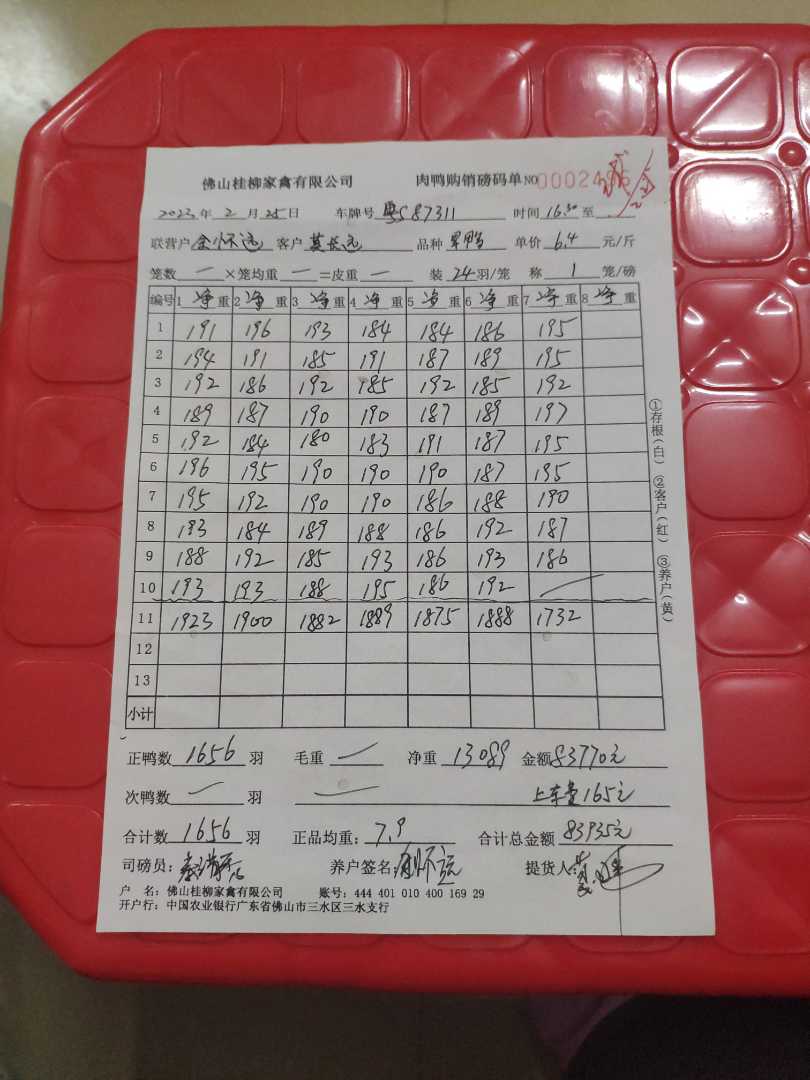 佛山桂柳家禽有限公司 肉鸭购销磅码单 NO 0002495
2023年2月25日 车牌号 粤S87311 时间 16:30 至
联营户 余怀远 客户 莫长远 品种 果鸭 单价 6.4 元/斤
笼数 一 ×笼均重 一 =皮重 一 装 24 羽/笼 称 1 笼/磅
编号 1 净 重 2 净 重 3 净 重 4 净 重 5 净 重 6 净 重 7 净 重 8 净 重
1 191 196 193 184 184 186 195
2 194 191 185 191 187 189 195
3 192 186 192 185 192 185 192
4 189 187 190 190 187 189 197
5 192 184 180 183 191 187 195
6 196 195 190 190 190 187 195
7 195 192 190 190 186 188 190
8 193 184 189 188 186 192 187
9 188 192 185 193 186 193 186
10 193 193 188 195 186 192
11 1923 1900 1882 1889 1875 1888 1732
12
13
小计
正鸭数 1656 羽 毛重 一 净重 13089 金额 83770元
次鸭数 一 羽 一 上车费165元
合计数 1656 羽 正品均重: 7.9 合计总金额 83935元
司磅员: 养户签名: 提货人:
户 名: 佛山桂柳家禽有限公司 账号: 444 401 010 400 169 29
开户行: 中国农业银行广东省佛山市三水区三水支行
①存根(白) ②客户(红) ③养户(黄)